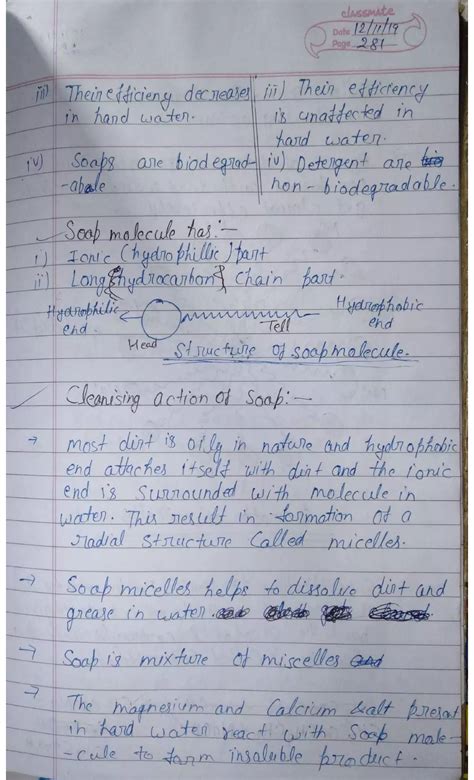 classmate
Date 12/11/19
Page 281
iii) Their efficieny decreases
in hard water.
iv) Soaps are biodegrad-
-abale
iii) Their efficiency
is unaffected in
hard water.
iv) Detergent are
non-biodegradable.
Soap molecule has:-
i) Ionic (hydrophillic) part
ii) Long {hydrocarbon} Chain part.
Hydrophilic
end.
Head
Tell
Hydrophobic
end
Structure of soap molecule.
Cleanising action of Soap:-
→ most dirt is oily in nature and hydrophobic
end attaches itself with dirt and the ionic
end is surrounded with molecule in
water. This result in formation of a
radial structure Called micelles.
→ Soap micelles helps to dissolve dirt and
grease in water.
→ Soap is mixture of miscelles
→ The magnesium and Calcium salt present
in hard water react with Soap mole-
-cule to form insoluble product.